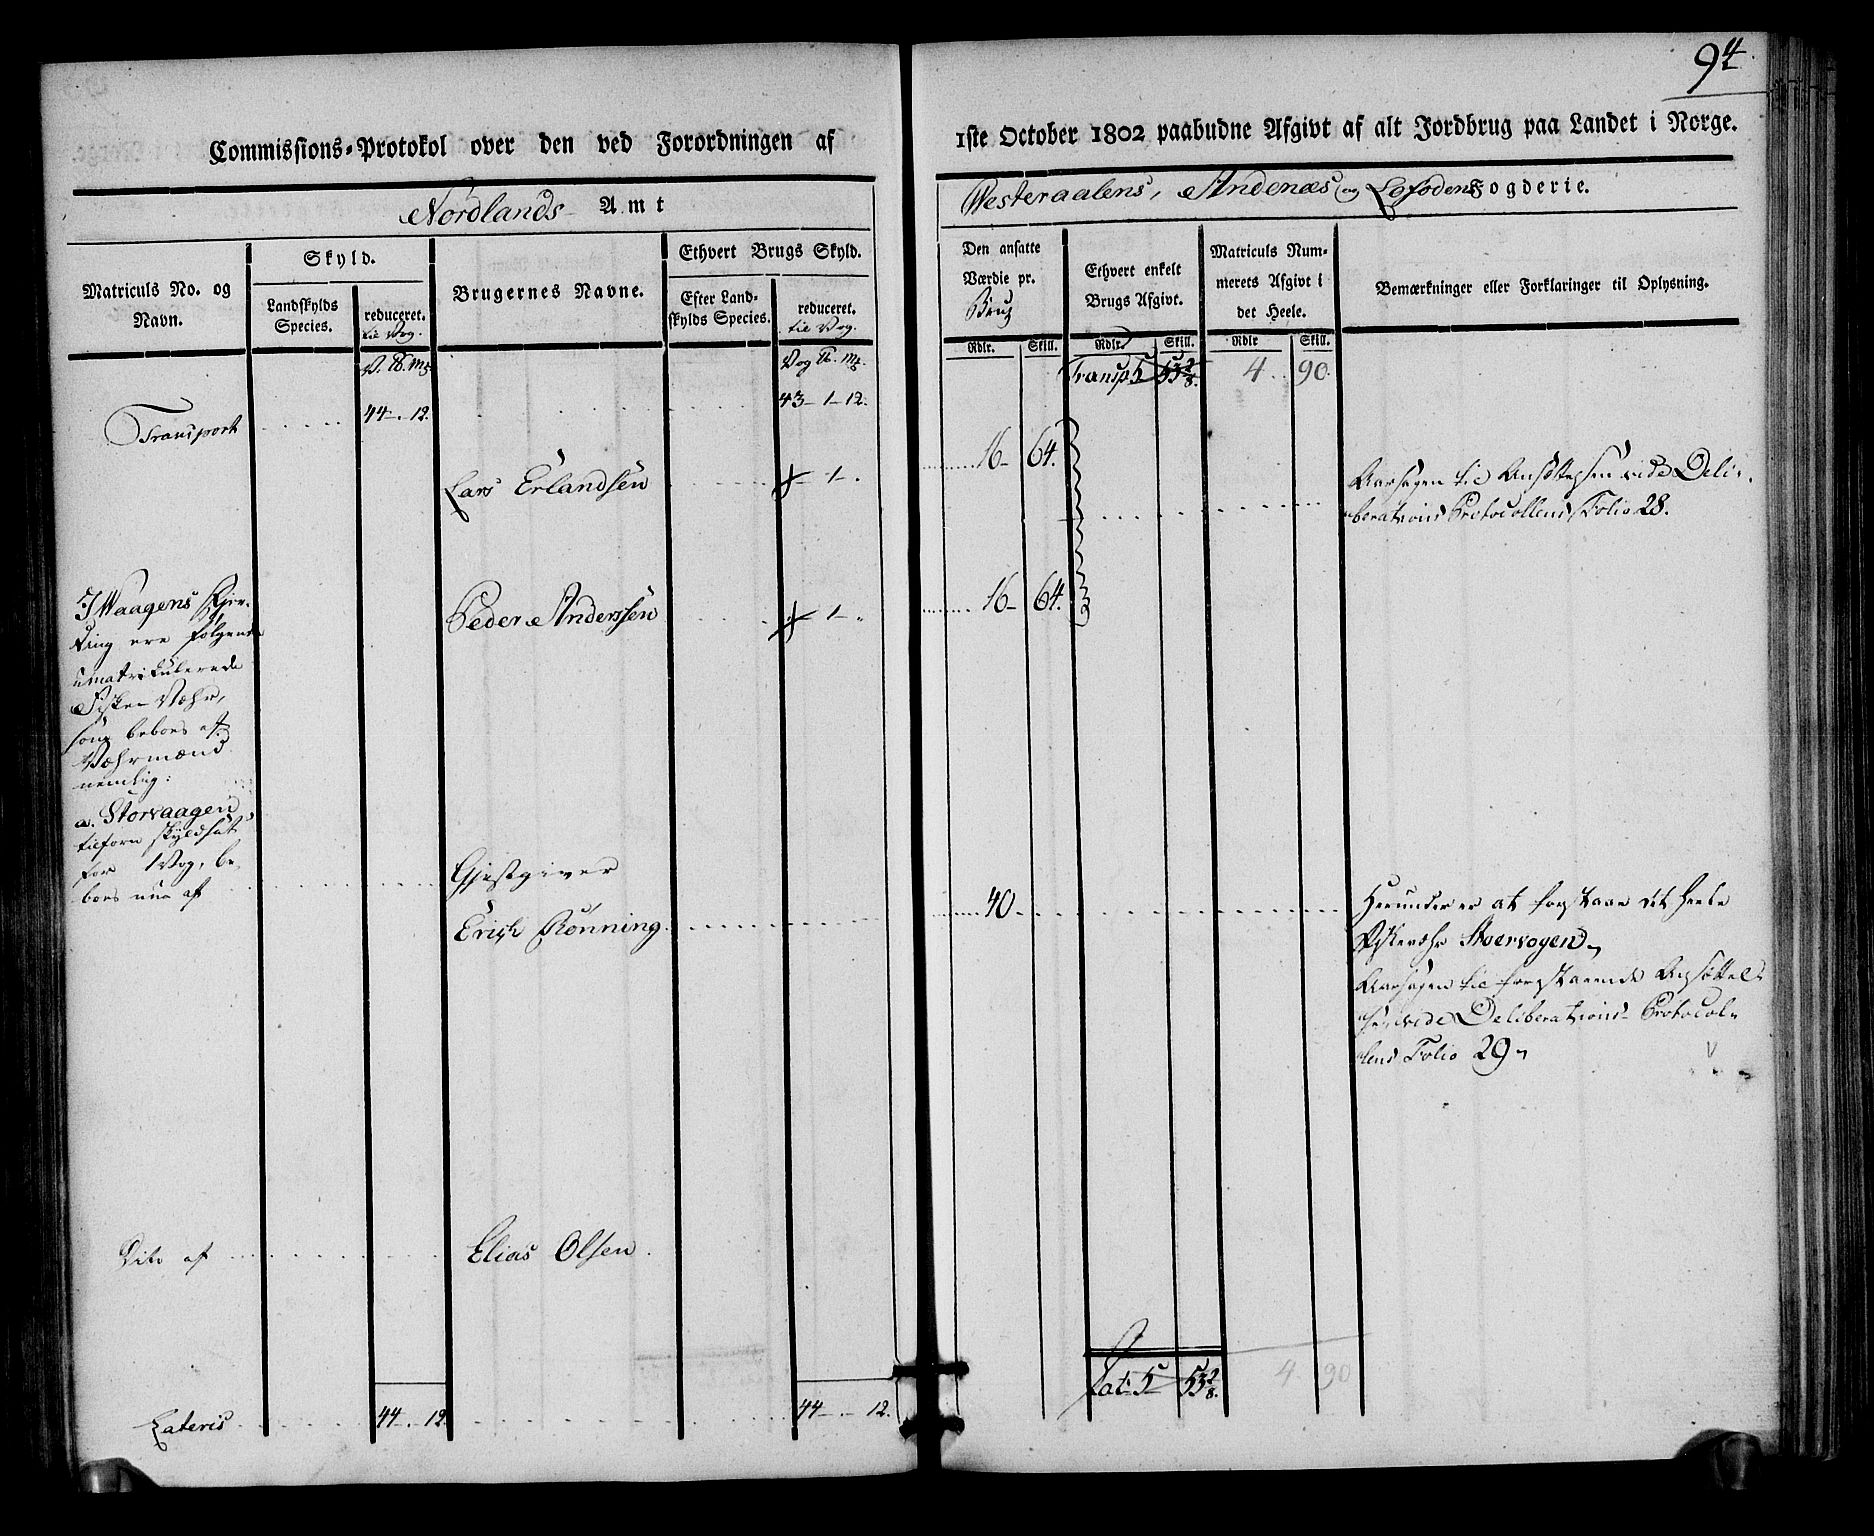 94.
Commissions-Protokol over den ved Forordningen af
1ste October 1802 paabudne Afgivt af alt Jordbrug paa Landet i Norge.
Nordlands Amt
Westeraalens, Andenæs og Lofodens Fogderie.
Matriculs No. og Navn.
Skyld.
Landskylds Species.
reduceret. til Vog.
Brugernes Navne.
Ethvert Brugs Skyld.
Efter Landskylds Species.
reduceret. til Vog.
Den ansatte Værdie pr. Brug
Ethvert enkelt Brugs Afgivt.
Matriculs Nummerets Afgivt i det Heele.
Bemærkninger eller Forklaringer til Oplysning.
Rdlr. Skill. Rdlr. Skill. Rdlr Skill.
V. ℔. mk. Vog ℔. mk. Transp. 5 53 2/8. 4 90.
Transport 44 - . 12. 43 - 1 - 12.
Lars Erlandsen - 1 - . 16 - 64. Aarsagen til Ansættelsen vide Deli-
berations Protocollens Folio 28.
I Waagens Fjer-
ding ere følgende
umatrikulerede
Fiske-Væhr,
som beboes af
Væhrmænd
nemlig:
Peder Anderssen - 1 - . 16 - 64.
a. Storvaagen
tilforn skyldsat
for 1 Vog, be-
boes nu af
Gjestgiver
Erich Rønning 40
Herunder er at forstaae det heele
Fiskevæhr Storvogen,
Aarsagen til forestaaende Ansættel-
se, vide Deliberations-Protocol-
lens Folio 29,
Dito af Elias Olsen.
Lateris 44 - . 12. 44 - . - 12. Lat. 5 53 2/8. 4 90